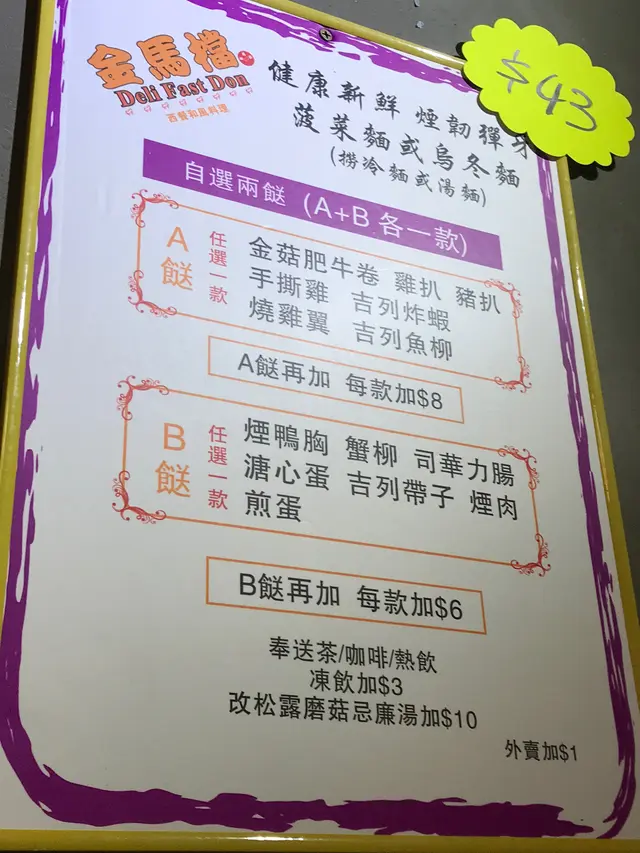 金馬檔
Deli Fast Don
西餐和風料理
$43
健康新鮮 煙韌彈牙
菠菜麵或烏冬麵
(撈冷麵或湯麵)
自選兩餸 (A+B 各一款)
A餸
任選一款
金菇肥牛卷 雞扒 豬扒
手撕雞 吉列炸蝦
燒雞翼 吉列魚柳
A餸再加 每款加$8
B餸
任選一款
煙鴨胸 蟹柳 司華力腸
溏心蛋 吉列帶子 煙肉
煎蛋
B餸再加 每款加$6
奉送茶/咖啡/熱飲
凍飲加$3
改松露磨菇忌廉湯加$10
外賣加$1